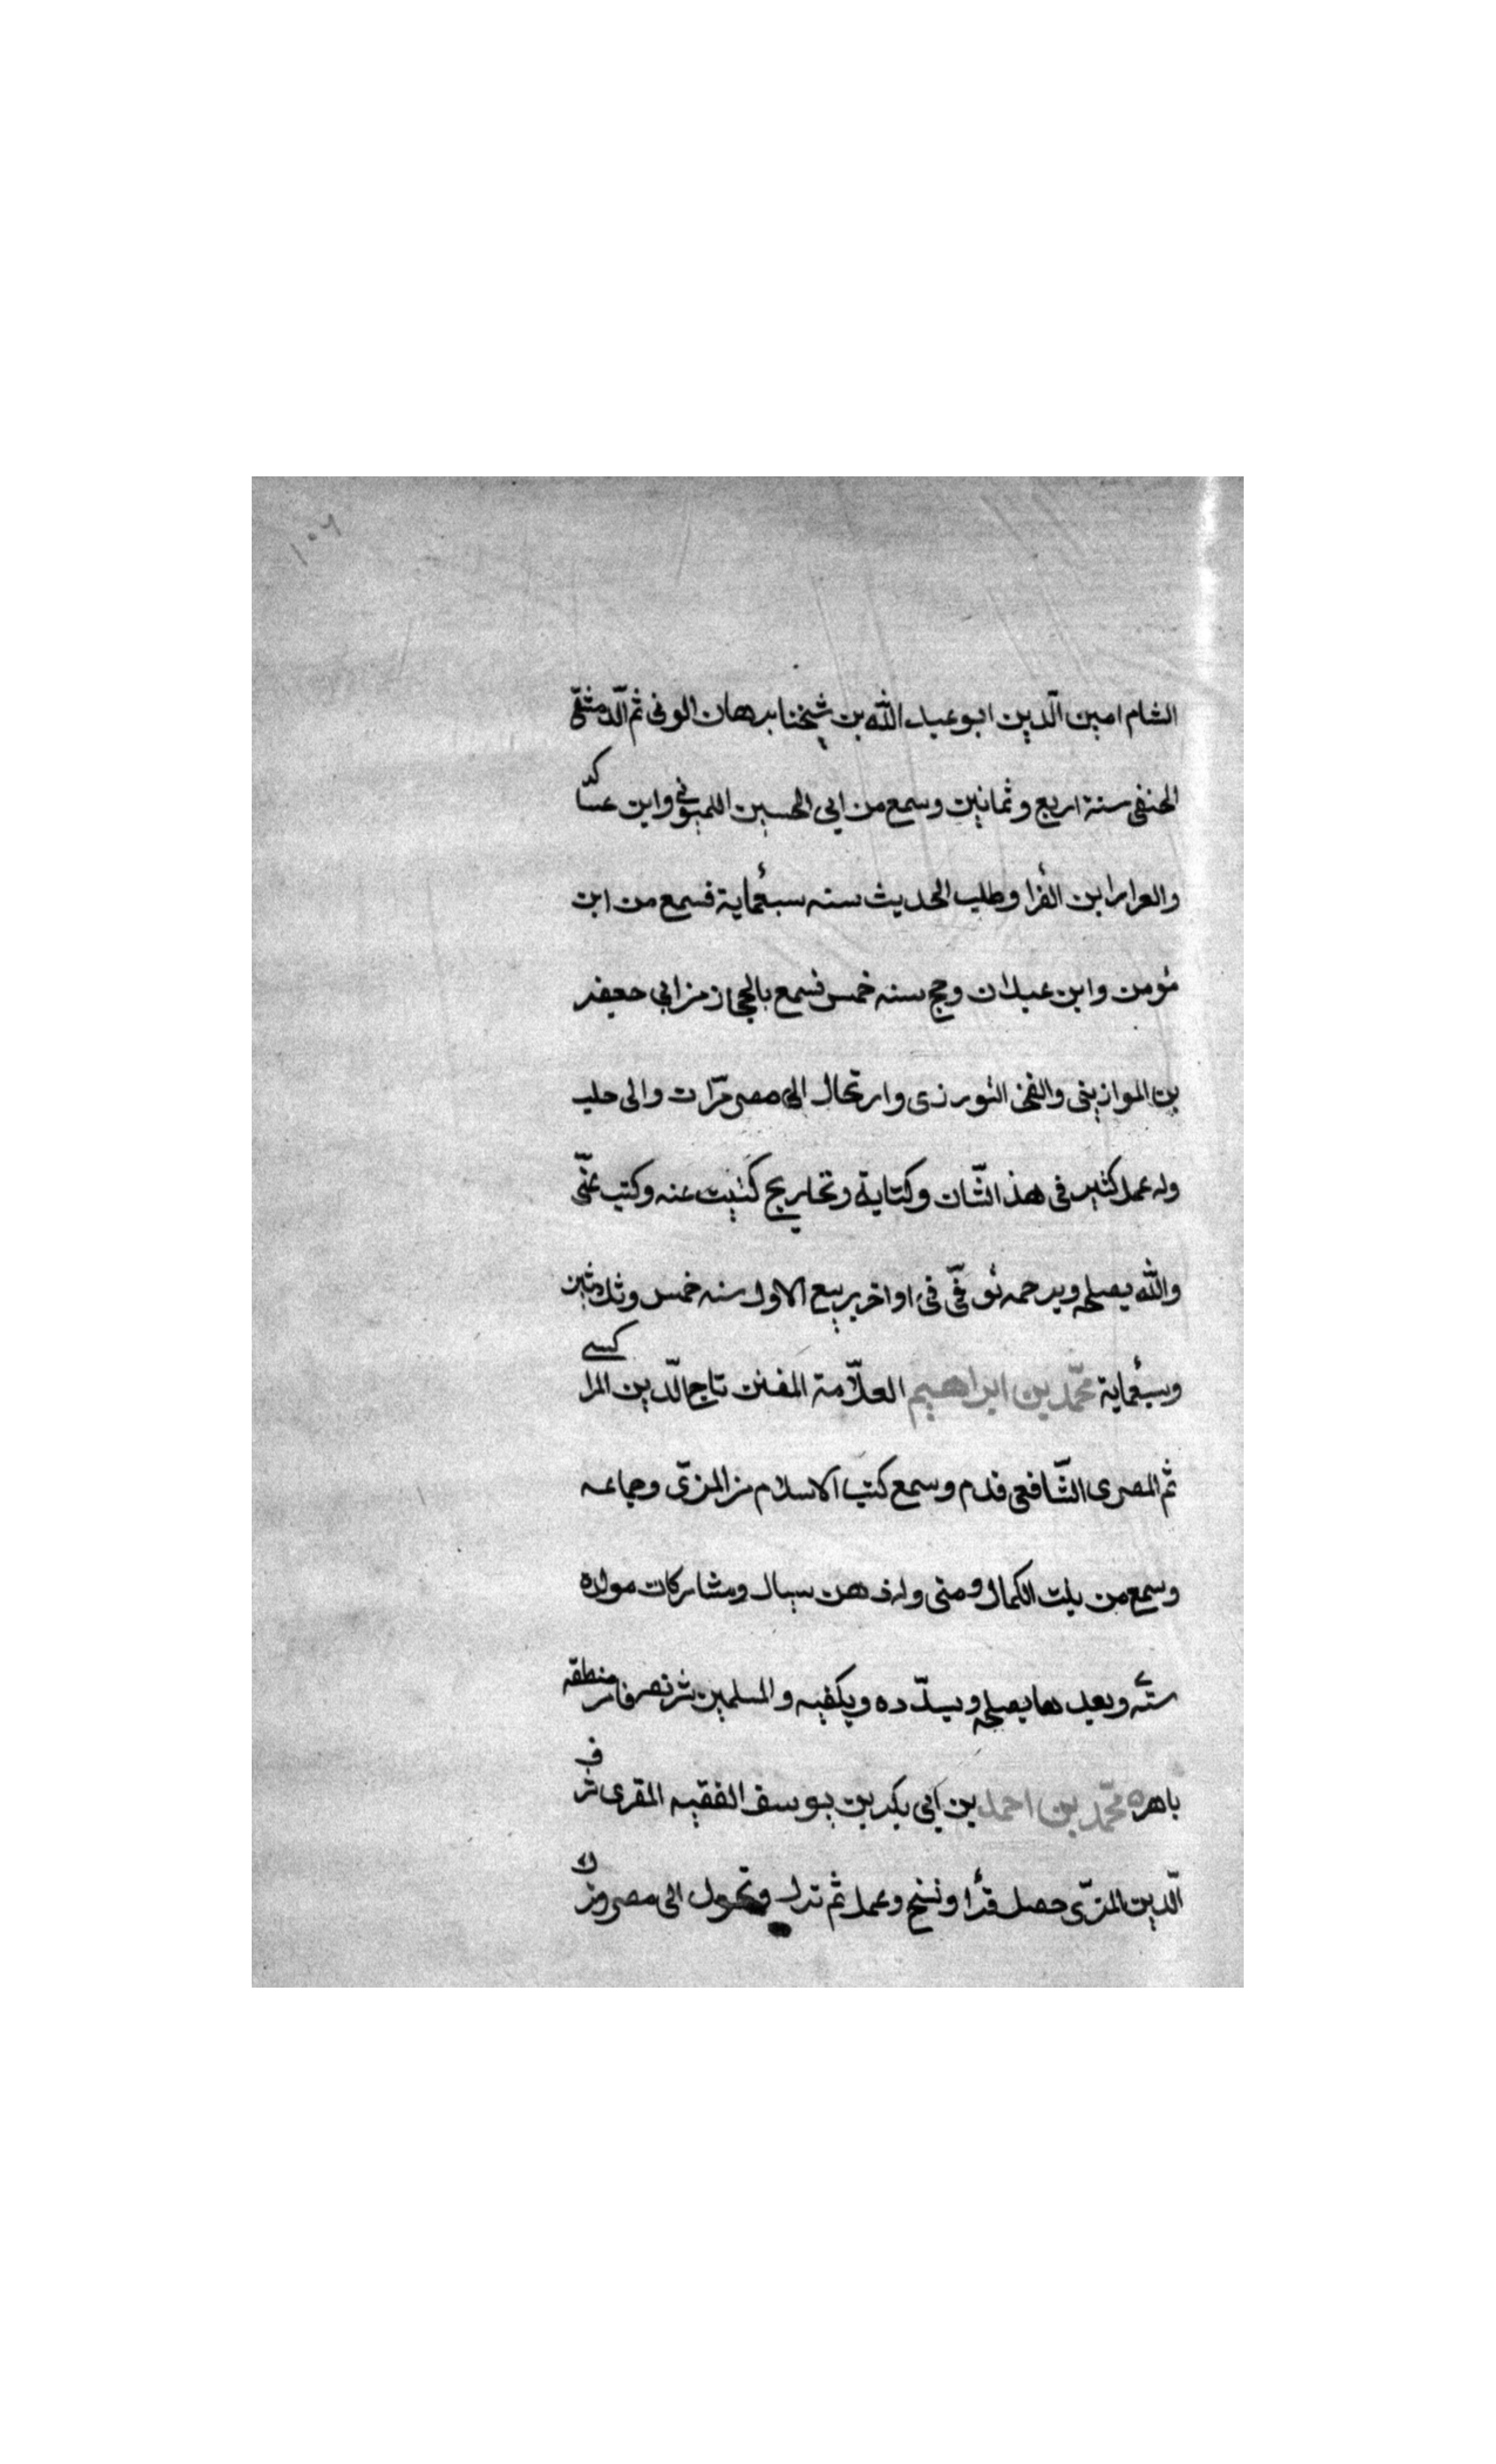 ١٠٦
الشام امين الدّين ابو عبد الله بن شيخنا برهان الوفى ثم الدّمشقى
الحنفى سنة اربع وثمانين وسمع من ابى الحسين اليونينى وابن عساكر
والعرابرا بن الفرا وطلب الحديث سنه سبعماية فسمع من ابن
مؤمن وابن عبدان وحج سنه خمس فسمع بالحجاز من ابى جعفر
بن الموازينى والفخر التورزى وارتحال الى مصر مرّات والى حلب
وله عمل كثير فى هذ الشّان وكتاية وتخاريج كتبت عنه وكتب عنّى
والله يصلحه ويرحمه توفّى فى اواخر ربيع الاول سنه خمس وثلاثين
وسبعماية محمّد بن ابراهيم العلاّمة المفنن تاج الدّين المراكسى
ثم المصرى الشّافعى قدم وسمع كتب الاسلام من المزىّ وجماعه
وسمع من بنت الكمال ومنى وله ذهن سيال ومشاركات مولده
سنة وبعدها يصلحه ويسدّده ويكفيه والمسلمين شر تصرفاتر منطقه
باهره محمّد بن احمد بن ابى بكر بن يوسف الفقيه المقرى شرف
الدّين المزىّ حصل قرأ ونسخ وعمل ثم ترك وتحول الى مصر وترك